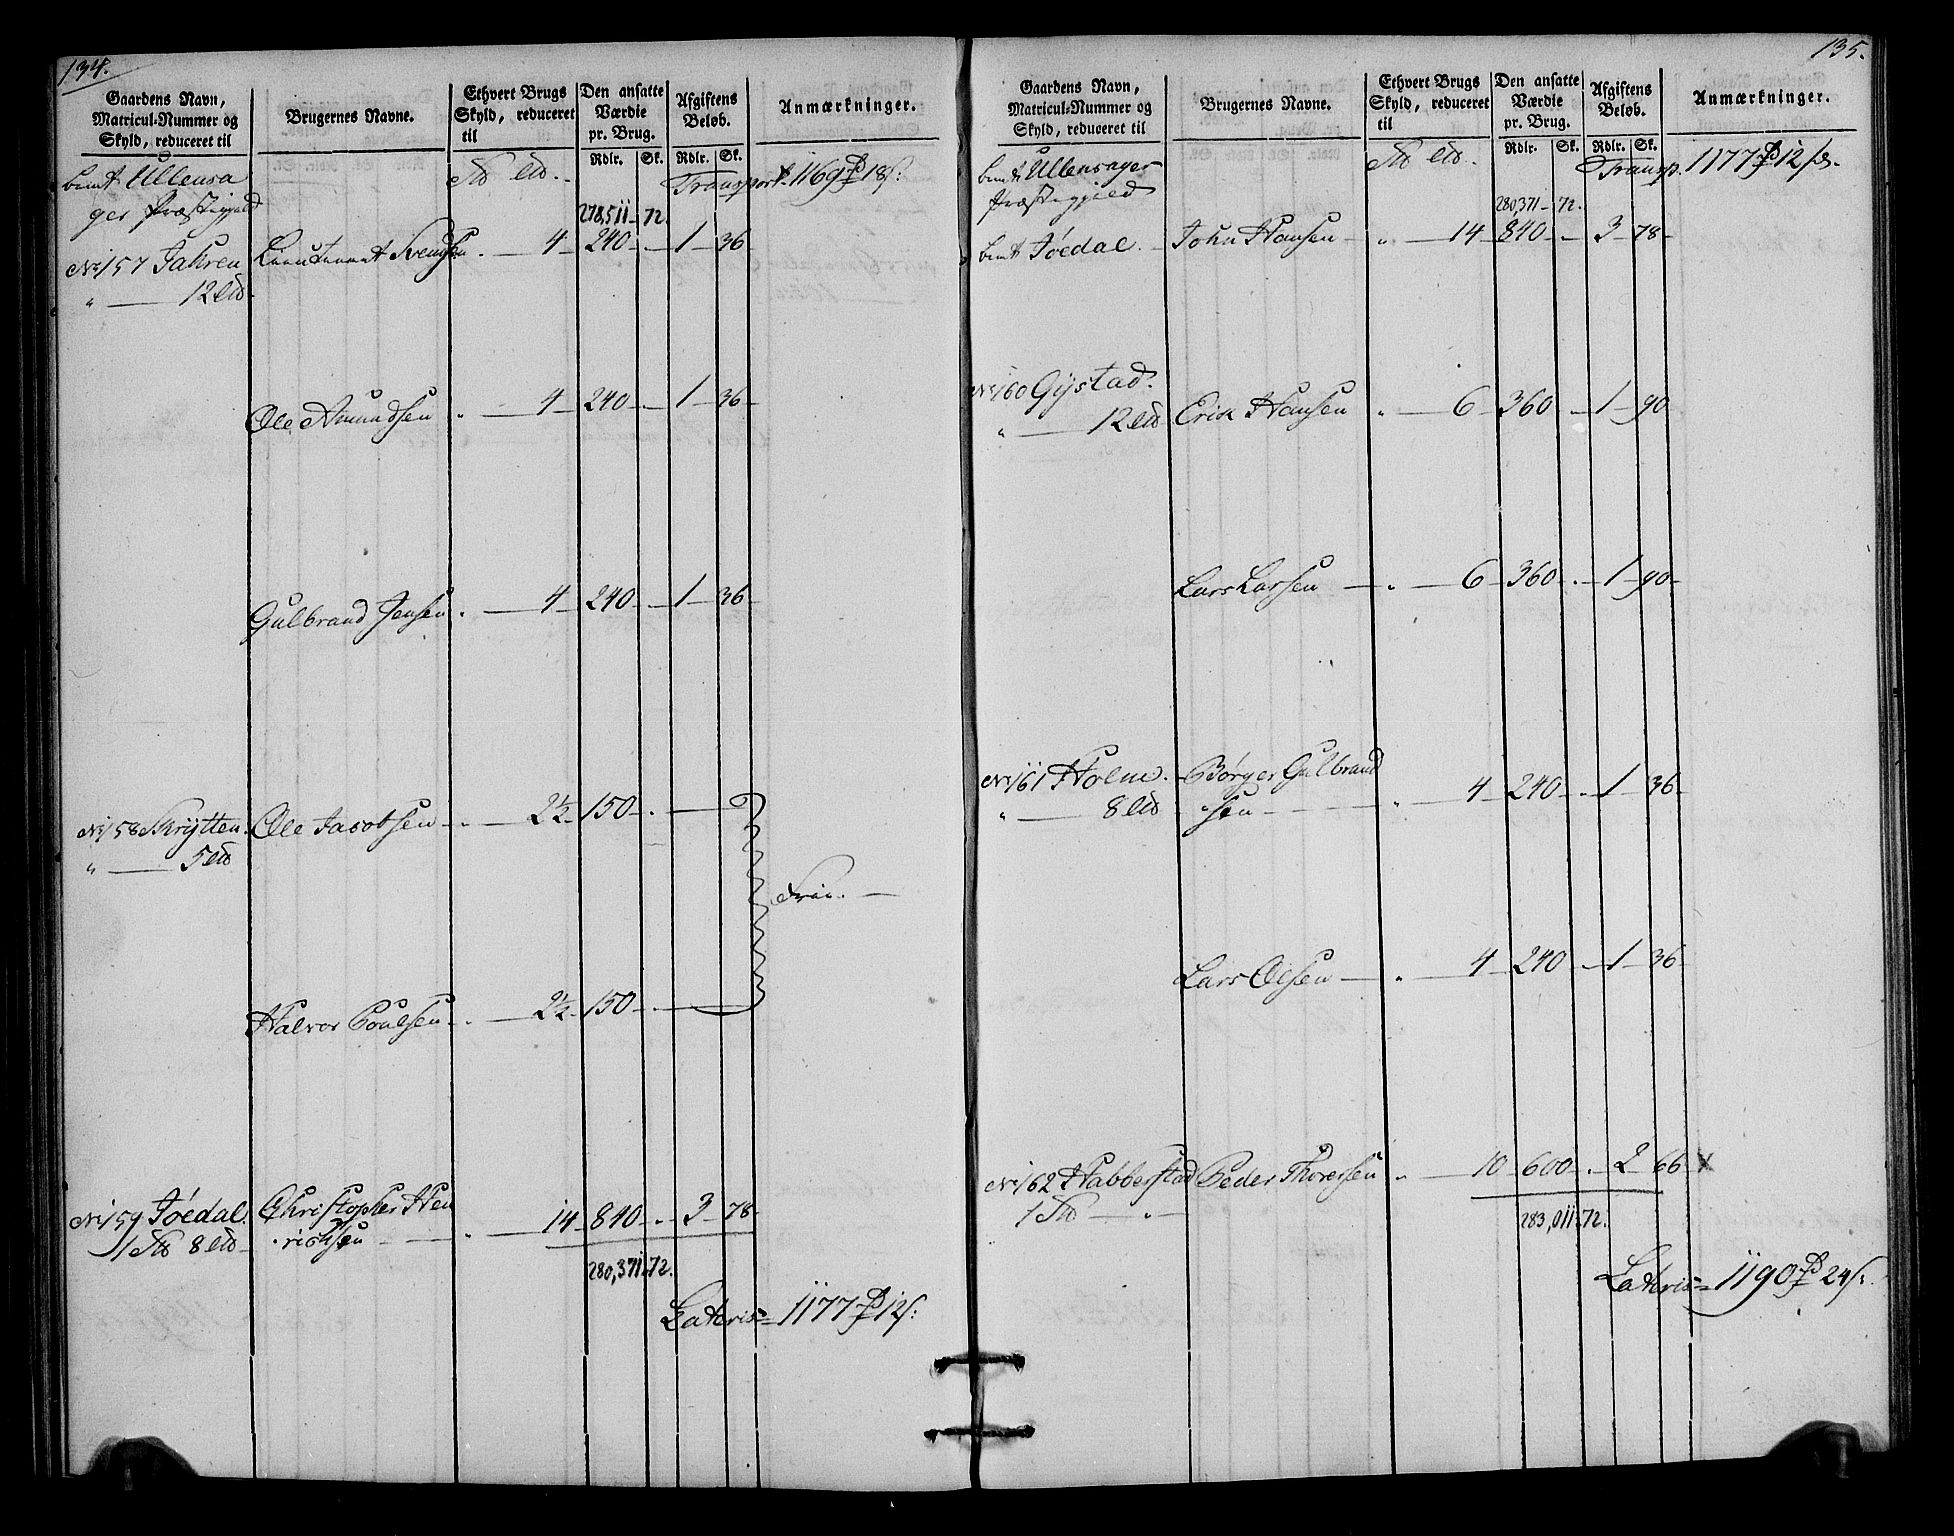 134.
Gaardens Navn, Matricul-Nummer og Skyld, reduceret til
Brugernes Navne.
Ethvert Brugs Skyld, reduceret til
Den ansatte Værdie pr. Brug.
Rdlr. Sk.
Afgiftens Beløb.
Rdlr. Sk.
Anmærkninger.
bemt Ullensa
ger Præstegjeld
Transport 1169 18 s:
278,511 - 72.
No 157 Jahren Lieutenant Svendsen 4 - 240 - 1 - 36
" 12
Ole Amundsen 4 - 240 - 1 - 36
Gulbrand Jensen 4 - 240 - 1 - 36
No 158 Skrytten Ole Jacobsen 2½ 150
" 5
Frie.
Halvor Poulsen 2½ 150
No 159 Jöedal Christopher Hen
1 8 richsen 14 - 840 - 3 - 78
280,371 - 72.
Lateris 1177 12 s:
135.
Gaardens Navn, Matricul-Nummer og Skyld, reduceret til
Brugernes Navne.
Ethvert Brugs Skyld, reduceret til
Den ansatte Værdie pr. Brug.
Rdlr. Sk.
Afgiftens Beløb.
Rdlr. Sk.
Anmærkninger.
bemt Ullensager
Præstegjeld
Transp. 1177 12
280,371 - 72.
bemt Jöedal. John Hansen " 14 - 840 - 3 - 78
No 160 Gystad.
" 12 Erik Hansen 6 - 360 - 1 - 90
Lars Larsen 6 - 360 - 1 - 90
No 161 Holm. Börger Gulbrand
" 8 sen 4 - 240 - 1 - 36
Lars Olsen 4 - 240 - 1 - 36
No 162 Habberstad Peder Thoresen 10 - 600 - 2 66 x
1 "
283,011 - 72.
Lateris 1190 24 s: